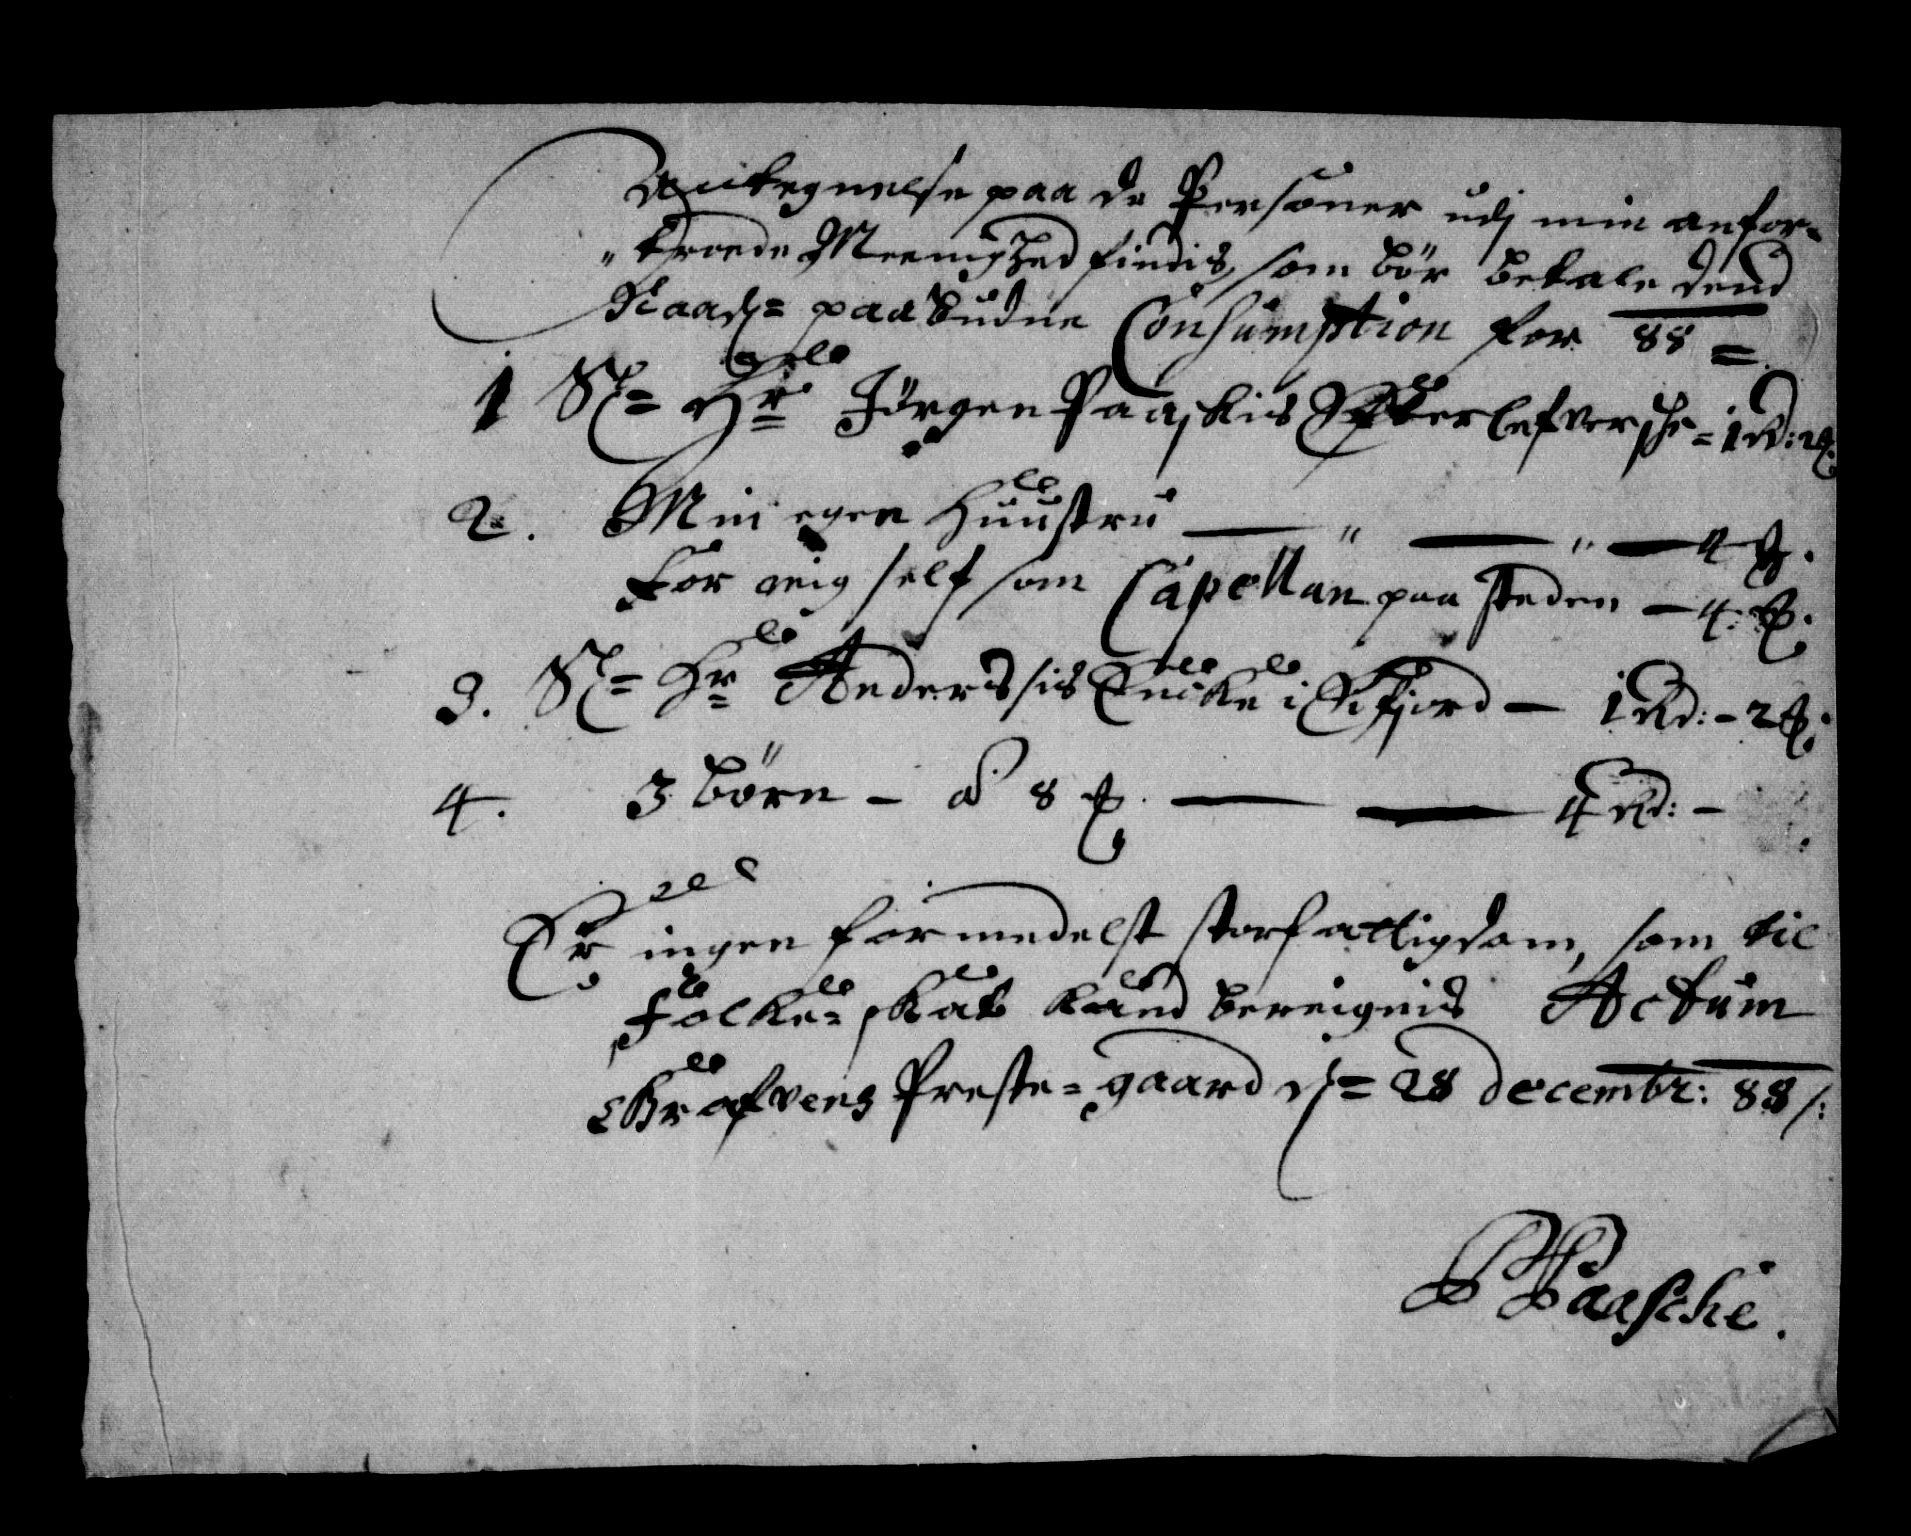 Antegnelse paa de Personer udj min anfor-
"troede Meenighed findis, som bör betale dend
Naadː= paabudne Consumption for 88 =
1 Sl= Hr Jörgen Paaskis Efterlefversche = 1 Rd: 2 ß.
2. Min egen Huustru — " — " — 4 ß.
For mig self som Capellan paa steden — 4 ß.
3. Sl= Hr Anderssis Encke i Eifjord — 1 Rd: - 2 ß.
4. 3 börn - a 8 ß. — — 4 Rd: -
Er ingen formedelst stor fattigdom, som til
Folke= skat kand bereignis Actum
Grafvens Preste= gaard d= 28 decembr: 88/:
Paasche.